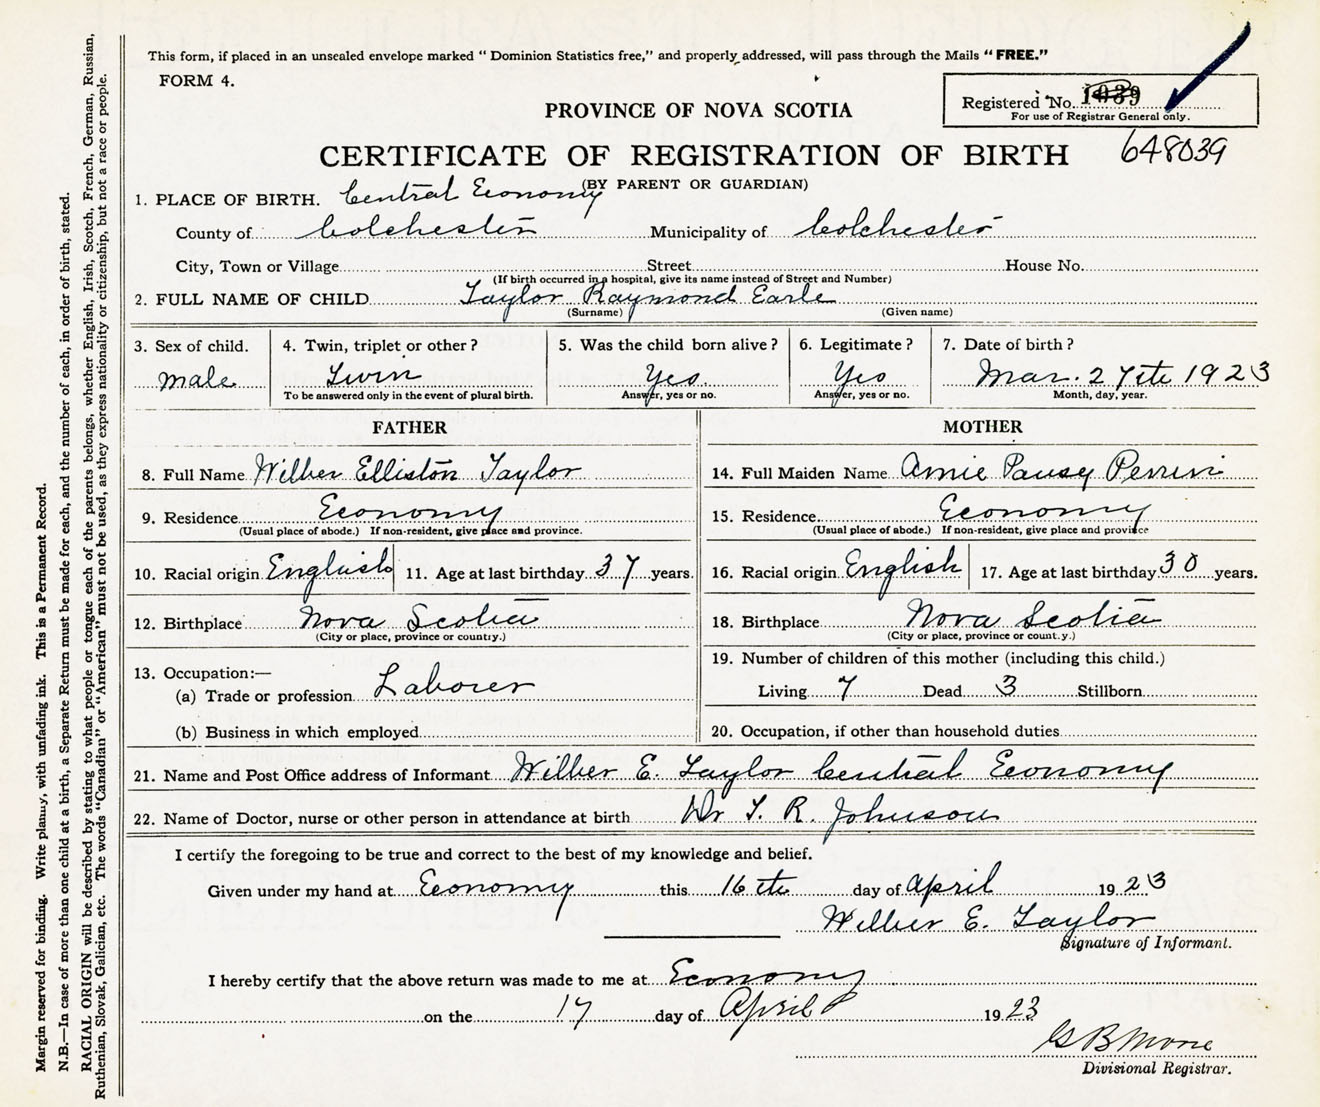 This form, if placed in an unsealed envelope marked " Dominion Statistics free," and properly addressed, will pass through the Mails " FREE."
FORM 4.
Registered No. 1039
For use of Registrar General only.
PROVINCE OF NOVA SCOTIA
648039
CERTIFICATE OF REGISTRATION OF BIRTH
(BY PARENT OR GUARDIAN)
1. PLACE OF BIRTH. Central Economy
County of Colchester Municipality of Colchester
City, Town or Village Street House No.
(If birth occurred in a hospital, give its name instead of Street and Number)
2. FULL NAME OF CHILD Taylor Raymond Earle
(Surname) (Given name)
3. Sex of child. 4. Twin, triplet or other ? 5. Was the child born alive ? 6. Legitimate ? 7. Date of birth ?
male Twin Yes. Yes Mar. 27th 1923
To be answered only in the event of plural birth. Answer, yes or no. Answer, yes or no. Month, day, year.
FATHER MOTHER
8. Full Name Wilber Elliston Taylor 14. Full Maiden Name Amie Pansy Perrin
9. Residence Economy 15. Residence Economy
(Usual place of abode.) If non-resident, give place and province. (Usual place of abode.) If non-resident, give place and province
10. Racial origin English 11. Age at last birthday 37 years. 16. Racial origin English 17. Age at last birthday 30 years.
12. Birthplace Nova Scotia 18. Birthplace Nova Scotia
(City or place, province or country.) (City or place, province or count.y.)
19. Number of children of this mother (including this child.)
13. Occupation:—
(a) Trade or profession Laborer Living 7 Dead 3 Stillborn
(b) Business in which employed 20. Occupation, if other than household duties
21. Name and Post Office address of Informant Wilber E. Taylor Central Economy
22. Name of Doctor, nurse or other person in attendance at birth Dr T. R. Johnson
I certify the foregoing to be true and correct to the best of my knowledge and belief.
Given under my hand at Economy this 16th day of April 1923
Wilber E. Taylor
Signature of Informant.
I hereby certify that the above return was made to me at Economy
on the 17 day of April 1923
G B
Divisional Registrar.
Margin reserved for binding. Write plainly, with unfading ink. This is a Permanent Record.
N.B.—In case of more than one child at a birth, a Separate Return must be made for each, and the number of each, in order of birth, stated.
RACIAL ORIGIN will be described by stating to what people or tongue each of the parents belongs, whether English, Irish, Scotch, French, German, Russian,
Ruthenian, Slovak, Galician, etc. The words "Canadian" or "American" must not be used, as they express nationality or citizenship, but not a race or people.